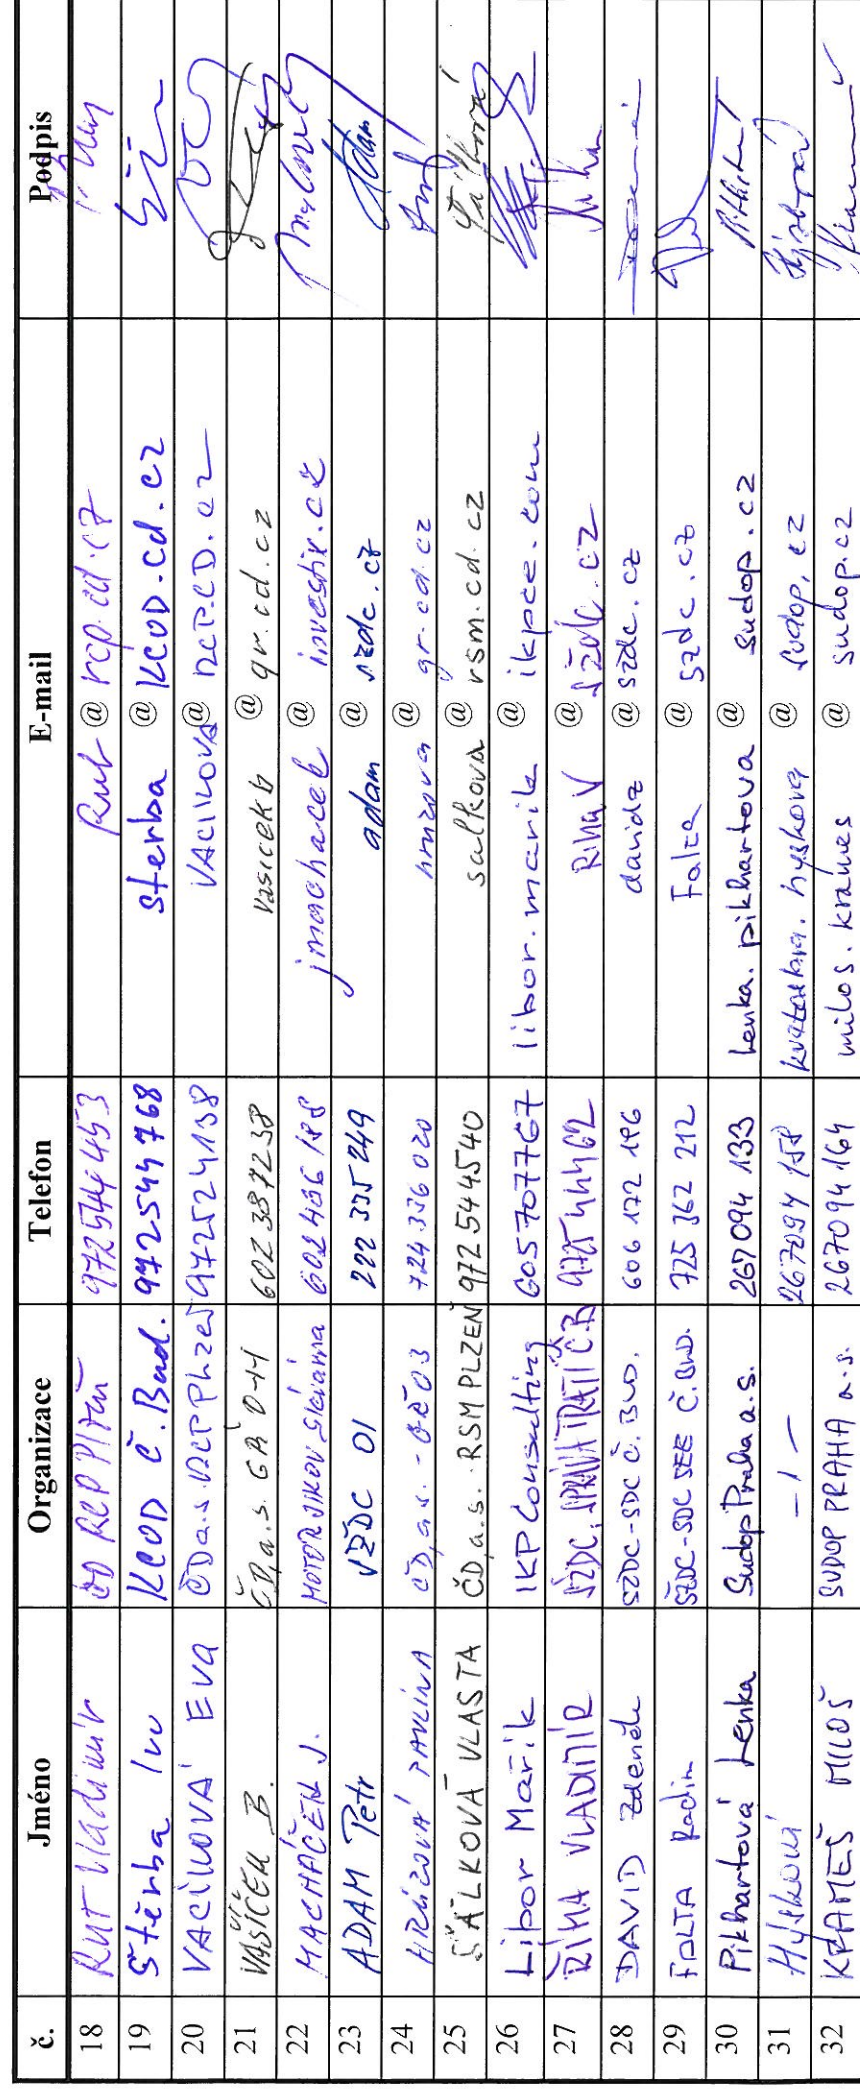 č. Jméno Organizace Telefon E-mail Podpis
18 RUT Vladimír ČD RCP Plzeň 972544453 Rut @ rcp.cd.cz
19 Štěrba Ivo KCOD Č. Bud. 972544768 sterba @ KCOD.cd.cz
20 VACÍKOVÁ EVA ČD a.s. RCP Plzeň 972524138 VACIKOVA @ RCP.CD.cz
21 VAŠÍČEK B. ČD, a.s. GŘ O-11 602387238 vasicekb @ gr.cd.cz
22 MACHÁČEK J. 602486188 jmachacek @ investix.cz
23 ADAM Petr SŽDC 01 222 335 249 adam @ szdc.cz Adam
24 HRŮZOVÁ PAVLÍNA ČD, a.s. 724 336 020 hruzova @ gr.cd.cz
25 ŠÁLKOVÁ VLASTA ČD, a.s. RSM PLZEŇ 972544540 salkova @ rsm.cd.cz Šálková
26 Libor Mařík IKP Consulting 605707767 libor.marik @ ikpce.com
27 ŘÍHA VLADIMÍR SŽDC, SPRÁVA TRATÍ Č.B. 972544462 RihaV @ szdc.cz
28 DAVID Zdeněk SŽDC-SDC Č. BUD. 606 172 196 davidz @ szdc.cz
29 FALTA Radim SŽDC-SDC SEE Č. BUD. 725 362 212 Falta @ szdc.cz
30 Pikhartová Lenka Sudop Praha a.s. 267 094 133 Lenka.pikhartova @ sudop.cz
31 Hýsková -1- 267094 158 kvetoslava.hyskova @ sudop.cz
32 KRAMEŠ MILOŠ SUDOP PRAHA a.s. 267094164 milos.krames @ sudop.cz